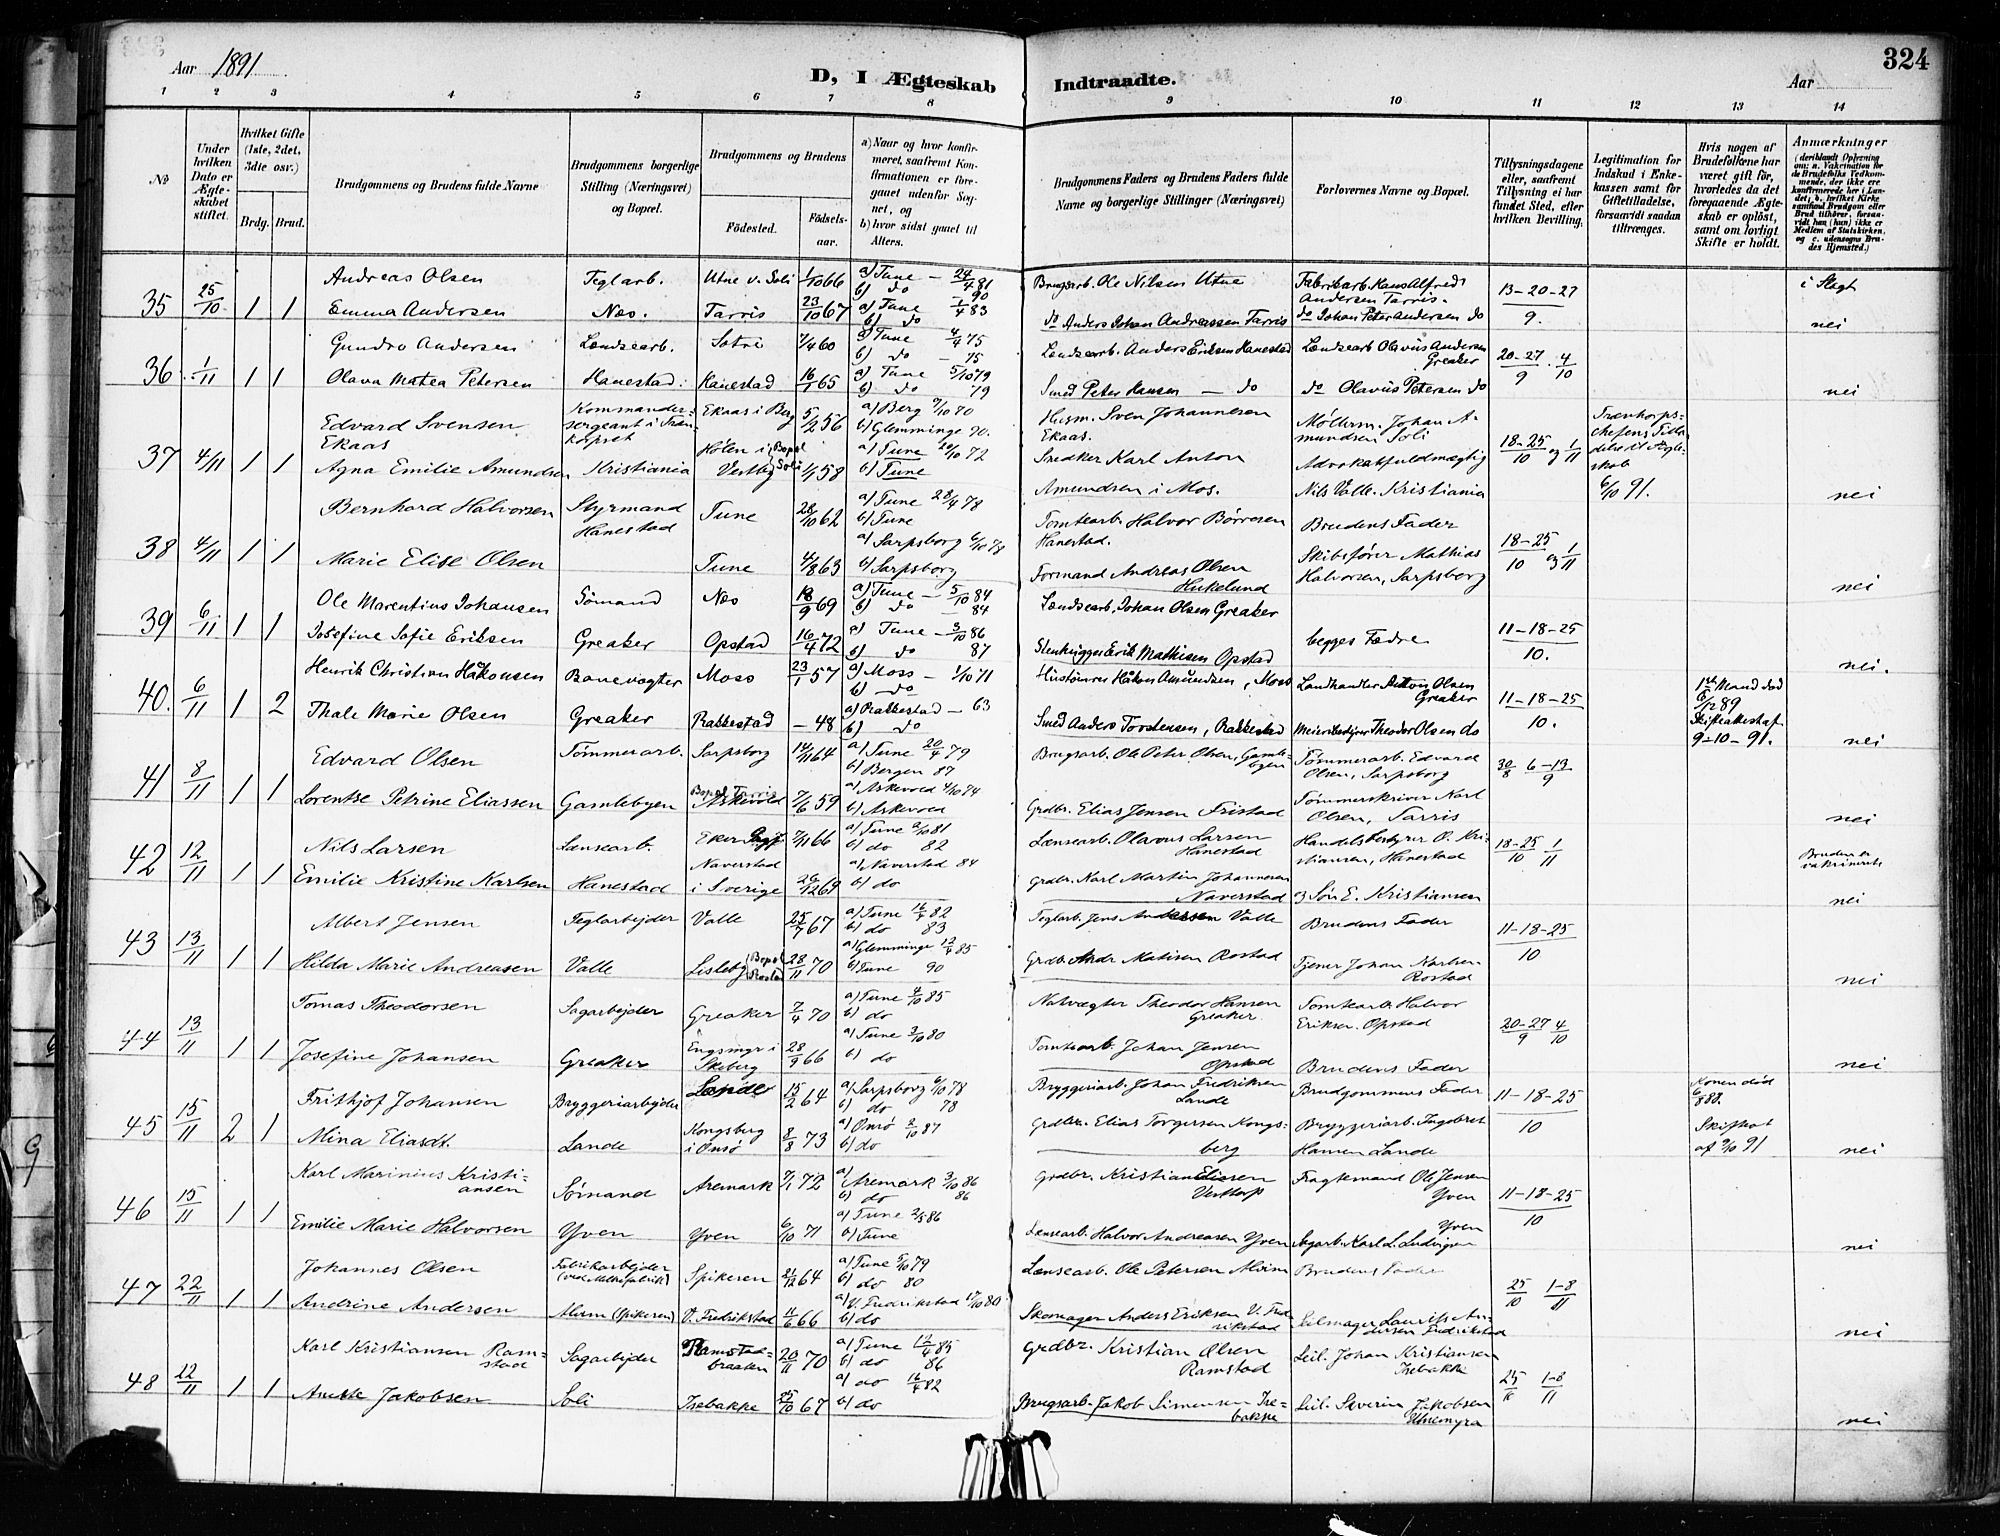 Aar 1891
D, I Ægteskab Indtraadte.
324
Aar
1 2 3 4 5 6 7 8 9 10 11 12 13 14
№
Under hvilken Dato er Ægteskabet stiftet.
Hvilket Gifte (1ste, 2det, 3die osv.)
Brdg. Brud.
Brudgommens og Brudens fulde Navne
Brudgommens borgerlige Stilling (Næringsvei) og Bopæl.
Brudgommens og Brudens
Födested. Födselsaar.
a) Naar og hvor konfirmeret, saafremt Konfirmationen er foregaaet udenfor Sognet, og
b) hvor sidst gaaet til Alters.
Brudgommens Faders og Brudens Faders fulde Navne og borgerlige Stillinger (Næringsvei)
Forlovernes Navne og Bopæl.
Tillysningsdagene eller, saafremt Tillysning ei har fundet Sted, efter hvilken Bevilling.
Legitimation for Indskud i Enkekassen samt for Giftetilladelse, forsaavidt saadan tiltrænges.
Hvis nogen af Brudefolkene har været gift før, hvorledes da det foregaaende Ægteskab er oplöst, samt om lovligt Skifte er holdt.
Anmærkninger
35 25/10 1 1 Andreas Olsen Teglarb. Utne v. Soli 1/10 66 a) Tune – 24/4 81 Brugsarb. Ole Nilsen Utne Fabrikarb. Hans Alfred Andersen Tarris. 13-20-27/9. i Slegt
b) do 90
Emma Andersen Næs. Tarris 23/10 67 a) Tune 1/4 83 do Anders Johan Andreassen Tarris do Johan Peter Andersen do nei
b) do
36 1/11 1 1 Gundro Andersen Lændsearb. 7/4 60 a) Tune 4/4 75 Lændsearb. Anders Eriksen Hanestad Lændsearb Olavus Andersen Greaker 20-27/9 . 4/10
b) do – 75
Olava Matea Petersen Hanestad. Hanestad 16/1 65 a) Tune 5/10 79 Smed Peter Hansen – do do Olavus Petersen do nei
b) do 79
37 4/11 1 1 Edvard Svensen Ekaas Kommandersergeant i Trænkorpset Ekaas i Berg 5/2 56 a) Berg 9/10 70 Husm. Sven Johannesen Ekaas. Møllerm. Johan Amundsen Soli 18-25/10 og 1/11 Trænkorpschefens Tilladelse til Ægteskab 6/10 91.
b) Glemminge 90.
Agna Emilie Amundsen Kristiania Hølen i Vestby Bopæl Soli 1/1 58 a) Tune 20/10 72 Snedker Karl Anton Amundsen i Mos. Advokatfuldmægtig Nils Valle. Kristiania nei
b) Tune
38 4/11 1 1 Bernhard Halvorsen Styrmand Hanestad Tune 28/10 62 a) Tune 28/4 78 Tomtearb. Halvor Børresen Hanestad. Brudens Fader 18-25/10 og 1/11
b) Tune
Marie Elise Olsen Tune 4/8 63 a) Sarpsborg 6/10 78 Formand Andreas Olsen Hukelund Skibsfører Mathias Halvorsen, Sarpsborg nei
b) Sarpsborg
39 6/11 1 1 Ole Marentius Johansen Sömand Næs 18/9 69 a) Tune – 5/10 84 Lændsearb. Johan Olsen Greaker begges Fædre 11-18-25/10.
b) do – 84
Josefine Sofie Eriksen Greaker Opstad 16/4 72 a) Tune – 3/10 86 Stenhugger Erik Mathisen Opstad nei.
b) do 87
40. 6/11 1 2 Henrik Christian Håkonsen Banevogter Moss 23/1 57 a) Moss – 1/10 71 Håkon Amundsen, Moss Landhandler Anton Olsen Greaker 11-18-25/10. 1ste Mand död 6/12 89 Skifteattest af 9-10-91.
b) do
Thale Marie Olsen Greaker Rakkestad – 48 a) Rakkestad – 63 Smed Anders Torstensen, Rakkestad Meieribestyrer Theodor Olsen do nei
b) do
41 8/11 1 1 Edvard Olsen Tømmerarb. Sarpsborg 14/11 64 a) Tune 20/4 79 Brugsarb. Ole Peter Olsen, Gamlebyen Tømmerarb. Edvard Olsen, Sarpsborg 30/8 6-13/9
b) Bergen 87
Lorentse Petrine Eliassen Gamlebyen Bopæl Tarris Askevold 7/6 59 a) Askevold 4/10 74 Grdbr. Elias Jensen Fristad Tømmerskriver Karl Olsen, Tarris nei
b) Askevold
42 12/11 1 1 Nils Larsen Lænsearb. Eker 7/11 66 a) Tune 2/10 81 Lænsearb. Olavus Larsen Hanestad Handelsbestyrer O. Kristiansen, Hanestad 18-25/10 1/11 Bruden er vakcineret
b) do 82
Emilie Kristine Karlsen Hanestad Naverstad i Sverige 26/12 69 a) Naverstad 84 Grdbr. Karl Martin Johannesen Naverstad og Søn E. Kristiansen nei
b) do
43 13/11 1 1 Albert Jensen Teglarbejder Valle 25/7 67 a) Tune 16/4 82 Teglarb. Jens Andersen Valle Brudens Fader 11-18-25/10
b) do 83
Hilda Marie Andreasen Valle Lisleby Bopæl Rostad 28/11 70 a) Glemminge 12/4 85 Grdbr. Andr Matisen Rostad Tjener Johan Karlsen Rostad nei
b) Tune 90
44 13/11 1 1 Tomas Theodorsen Sagarbejder Greaker 7/4 70 a) Tune 4/10 85 Natvægter Theodor Hansen Greaker. Tomtearb. Halvor Eriksen. Opstad 20-27/9 4/10
b) do
Josefine Johansen Greaker Engsmyr i Skeberg 28/9 66 a) Tune 3/10 80 Tomtearb. Johan Jensen Opstad Brudens Fader nei
b) do
45 15/11 2 1 Frithjof Johansen Bryggeriarbejder Lande 15/2 64 a) Sarpsborg 6/10 78 Bryggeriarb. Johan Fredriksen Lande Brudgommens Fader 11-18-25/10 Konen död 6/8 88.
b) do 78
Mina Eliasdt. Lande Kongsberg i Onsø 8/8 73 a) Onsø 2/10 87 Grdbr. Elias Torgersen Kongsberg Bryggeriarb. Ingebret Hansen Lande Skifteat af 9/10 91 nei
b) do
46 15/11 1 1 Karl Marinius Kristiansen Sømand Aremark 7/1 72 a) Aremark 3/10 86 Grdbr. Kristian Eliesen Vestorp Fragtemand Ole Jensen Yven 11-18-25/10
b) do 86
Emilie Marie Halvorsen Yven Yven 6/10 71 a) Tune 2/5 86 Lænsearb. Halvor Andreasen Yven Sagarb. Karl L. Ludvigsen Yven nei
b) Tune
47 22/11 1 1 Johannes Olsen Fabrikarbejder Spikeren 21/12 64 a) Tune 5/10 79 Lænsearb. Ole Petersen Alvim Brudens Fader 25/10 1-8/11
b) do 80
Andrine Andersen Alvim (Spikeren) V. Fredrikstad 11/6 66 a) V. Fredrikstad 17/10 80 Skomager Anders Eriksen V. Fredrikstad Seilmager Laurits Andersen Fredrikstad nei
b) do
48 22/11 1 1 Karl Kristiansen Ramstad Sagarbejder Ramstadbraaten 20/11 70 a) Tune 12/4 85 Grdbr. Kristian Olsen Ramstad Seil. Johan Kristiansen Isebakke 25/10 1-8/11
b) do 86
Anette Jakobsen Soli Isebakke 25/10 67 a) do 16/4 82 Brugsarb. Jakob Simensen Isebakke Seil. Severin Jakobsen Utnemyra nei
b) do